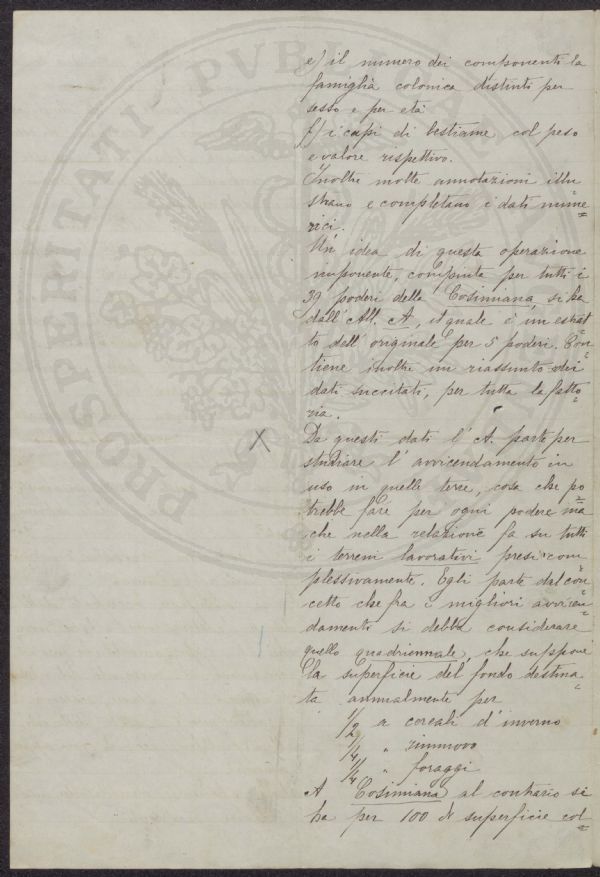 e) il numero dei componenti la
famiglia colonica distinti per
sesso e per età
f) i capi di bestiame col peso
e valore rispettivo.
Inoltre molte annotazioni illu
strano e completano i dati nume=
rici.
Un' idea di questa operazione
imponente, compiuta per tutti i
39 poderi della Cosimiana si ha
dall' All. A, il quale è un estrat=
to dell' originale per 5 poderi. Con=
tiene inoltre un riassunto dei
dati succitati, per tutta la fatto=
ria.
Da questi dati l' A. parte per
studiare l' avvicendamento in
uso in quelle terre, cosa che po=
trebbe fare per ogni podere ma
che nella relazione fa su tutti
i terreni lavorativi presi com=
plessivamente. Egli parte dal con=
cetto che fra i migliori avvicen=
damenti si debba considerare
quello quadriennale, che suppone
la superficie del fondo destina=
ta annualmente per
1/2 a cereali d' inverno
1/4 " rinnovo
1/4 " foraggi
A Cosimiana al contrario si
ha per 100 di superficie col=
PROSPERITATI PVBLICAE